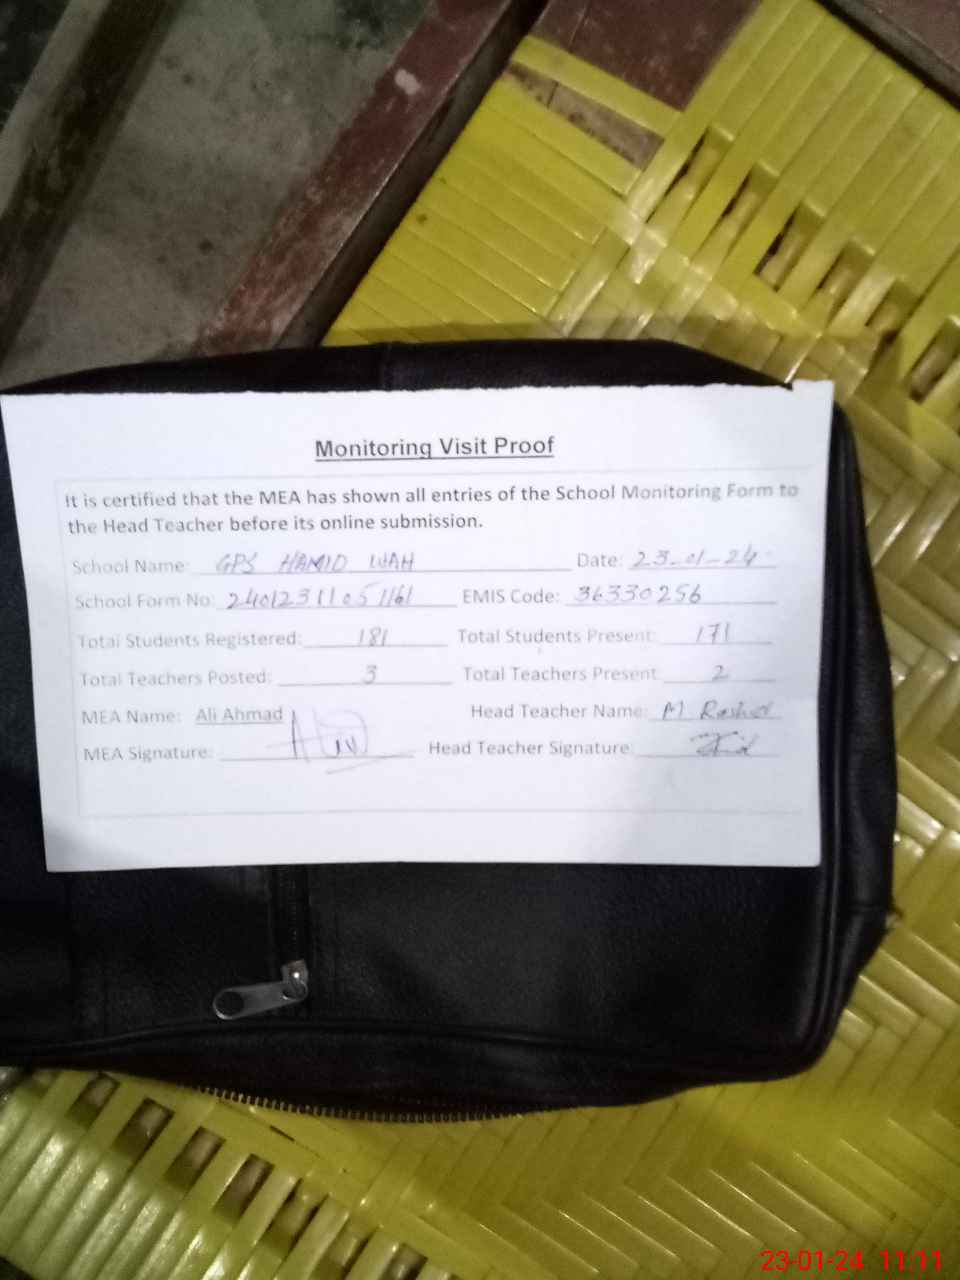 Monitoring Visit Proof
It is certified that the MEA has shown all entries of the School Monitoring Form to
the Head Teacher before its online submission.
School Name: GPS HAMID WAH Date: 23-01-24
School Form No: 24012311051161 EMIS Code: 36330256
Total Students Registered: 181 Total Students Present: 171
Total Teachers Posted: 3 Total Teachers Present: 2
MEA Name: Ali Ahmad Head Teacher Name: M Rashid
MEA Signature: Head Teacher Signature:
23-01-24 11:11